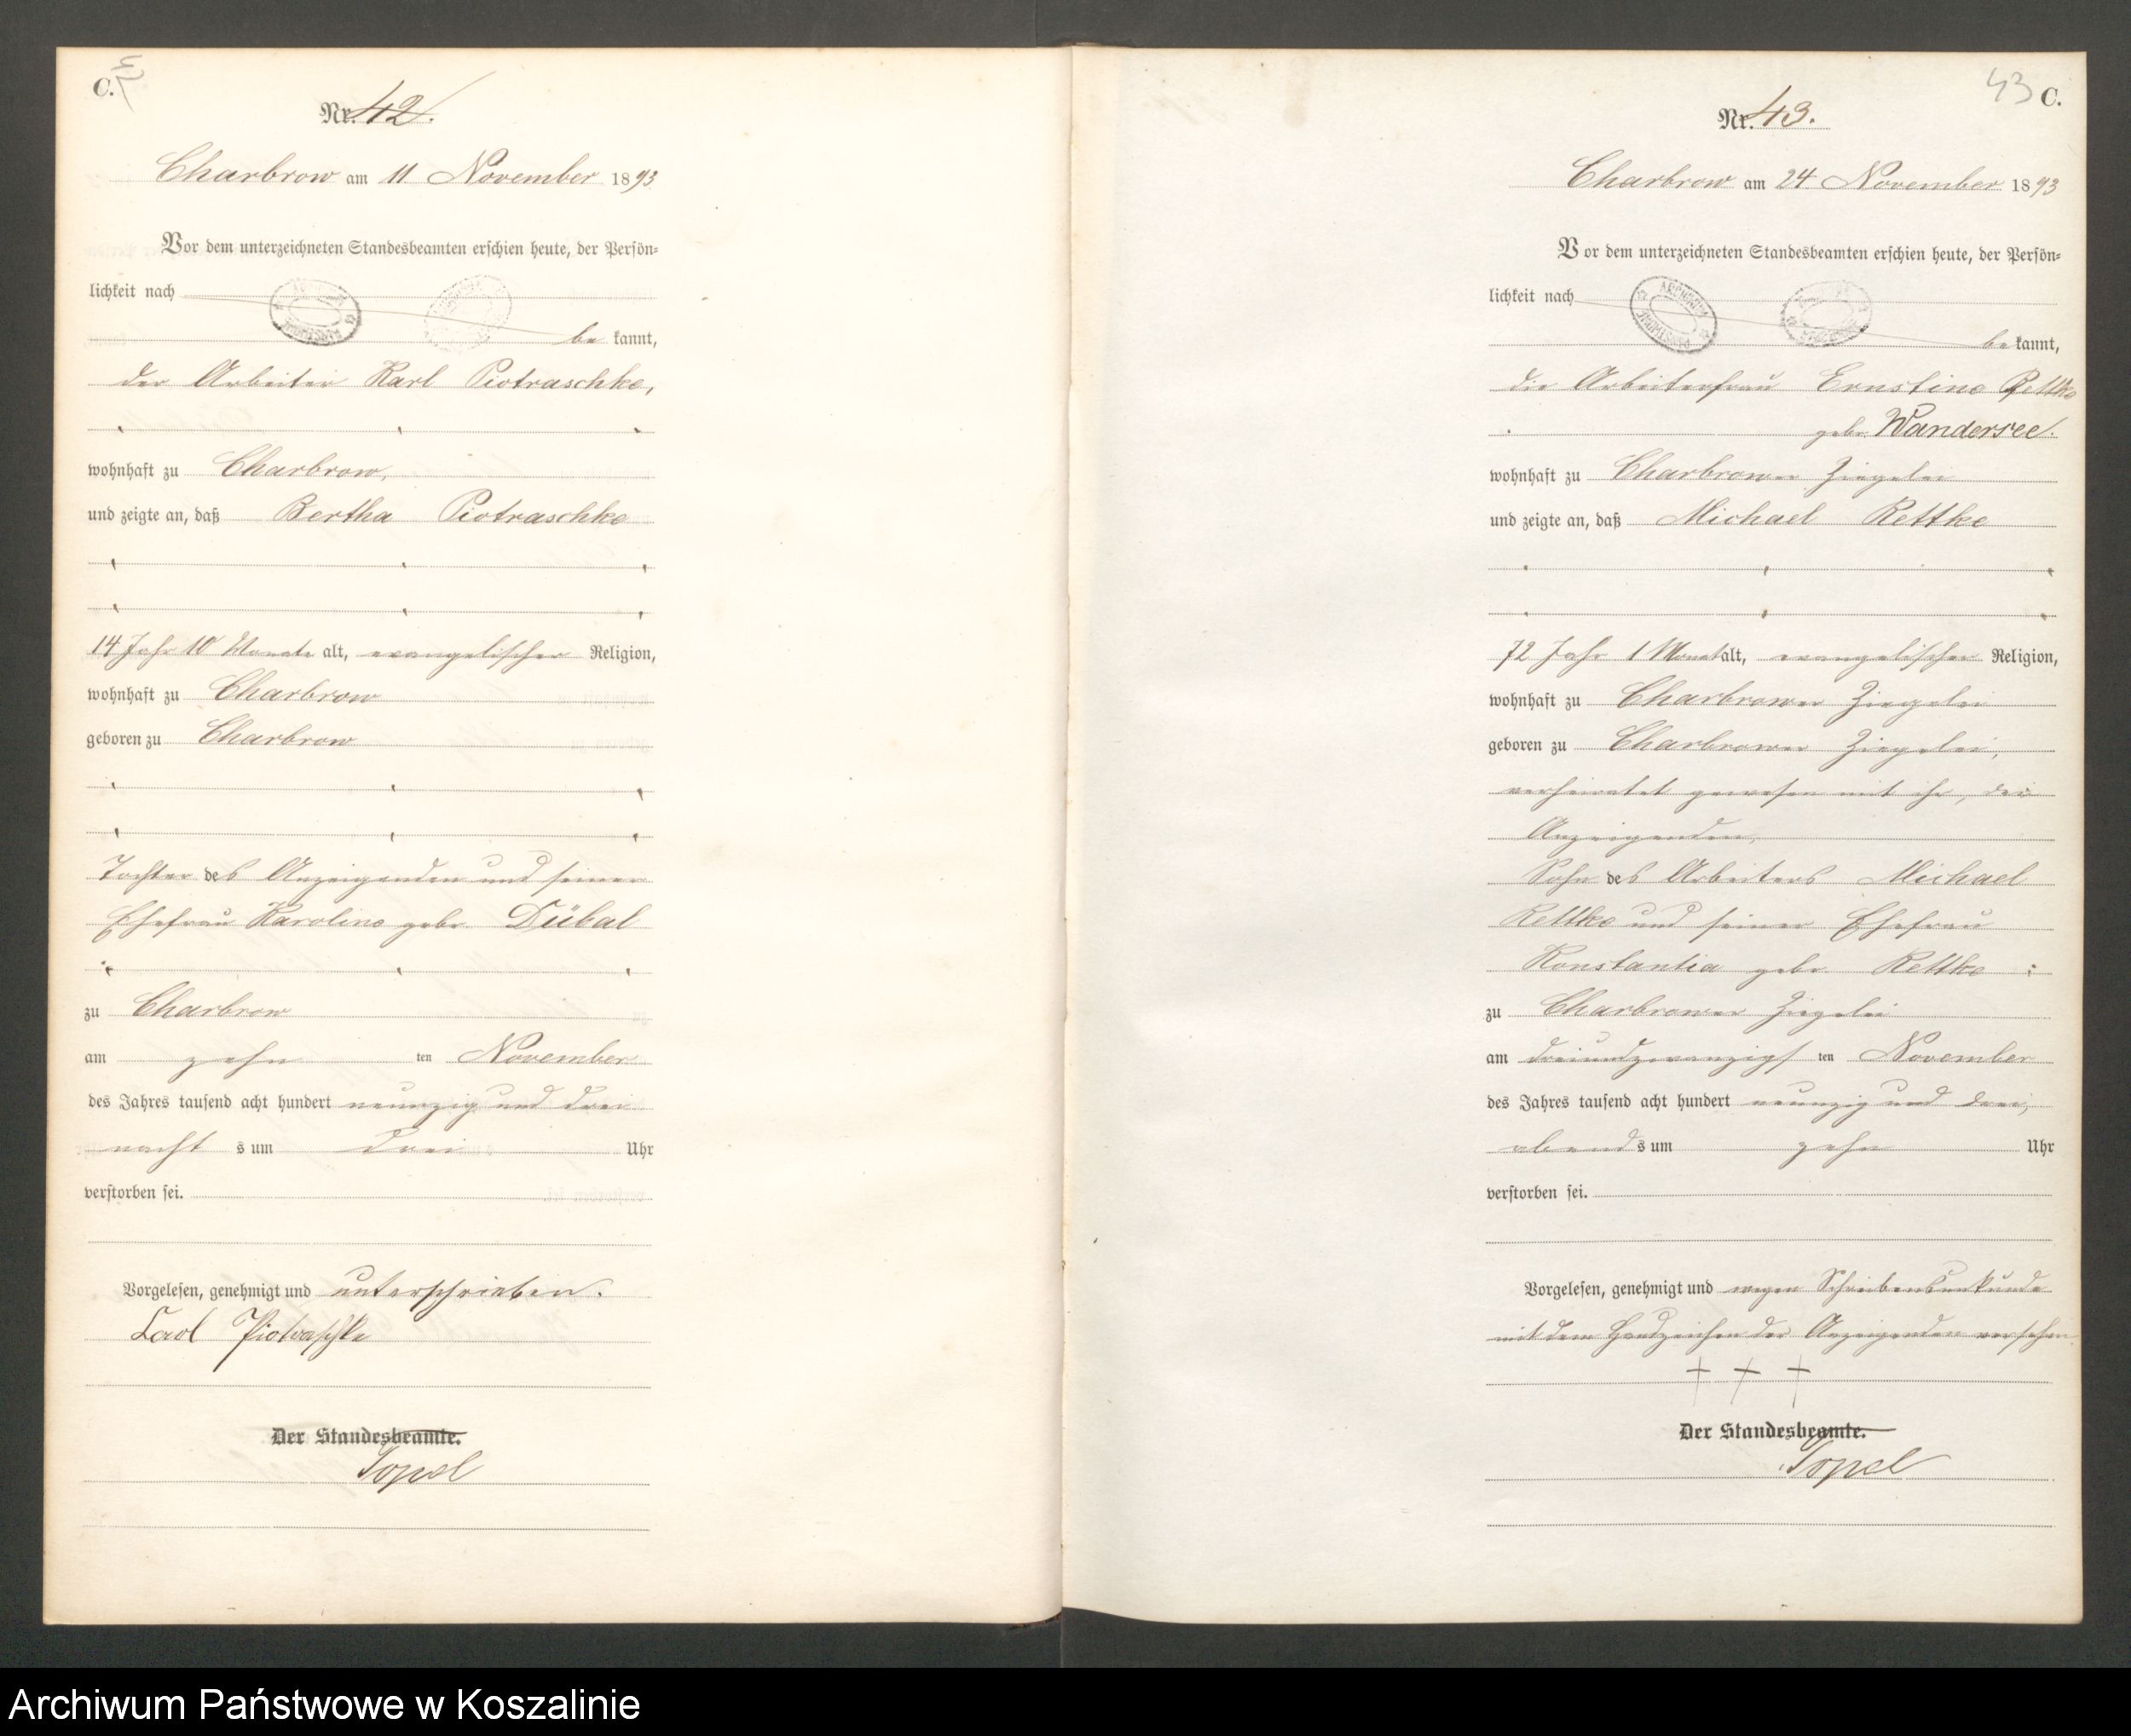 C.
Nr. 42.
Charbrow am 11 November 1893
Vor dem unterzeichneten Standesbeamten erschien heute, der Persön-
lichkeit nach
be kannt,
der Arbeiter Karl Piotraschke,
wohnhaft zu Charbrow,
und zeigte an, daß Bertha Piotraschke
14 Jahr 10 Monate alt, evangelischer Religion,
wohnhaft zu Charbrow
geboren zu Charbrow
Tochter des Anzeigenden und seiner
Ehefrau Karoline gebr. Dübal
zu Charbrow
am zehn ten November
des Jahres tausend acht hundert neunzig und drei
nacht s um drei Uhr
verstorben sei.
Vorgelesen, genehmigt und unterschrieben.
Carl Piotraschke
Der Standesbeamte.
Topel
43 C.
Nr. 43.
Charbrow am 24 November 1893
Vor dem unterzeichneten Standesbeamten erschien heute, der Persön-
lichkeit nach
be kannt,
die Arbeiterfrau Ernstine Rettke
gebr. Wandersee.
wohnhaft zu Charbrower Ziegelei
und zeigte an, daß Michael Rettke
72 Jahr 1 Monat alt, evangelischer Religion,
wohnhaft zu Charbrower Ziegelei
geboren zu Charbrower Ziegelei,
verheiratet gewesen mit ihr, der
Anzeigenden,
Sohn des Arbeiters Michael
Rettke und seiner Ehefrau
Konstantia gebr. Rettke
zu Charbrower Ziegelei
am dreiundzwanzigs ten November
des Jahres tausend acht hundert neunzig und drei,
abend s um zehn Uhr
verstorben sei.
Vorgelesen, genehmigt und wegen Schreibensunkunde
mit dem Handzeichen der Anzeigenden versehen
+ + +
Der Standesbeamte.
Topel
Archiwum Państwowe w Koszalinie